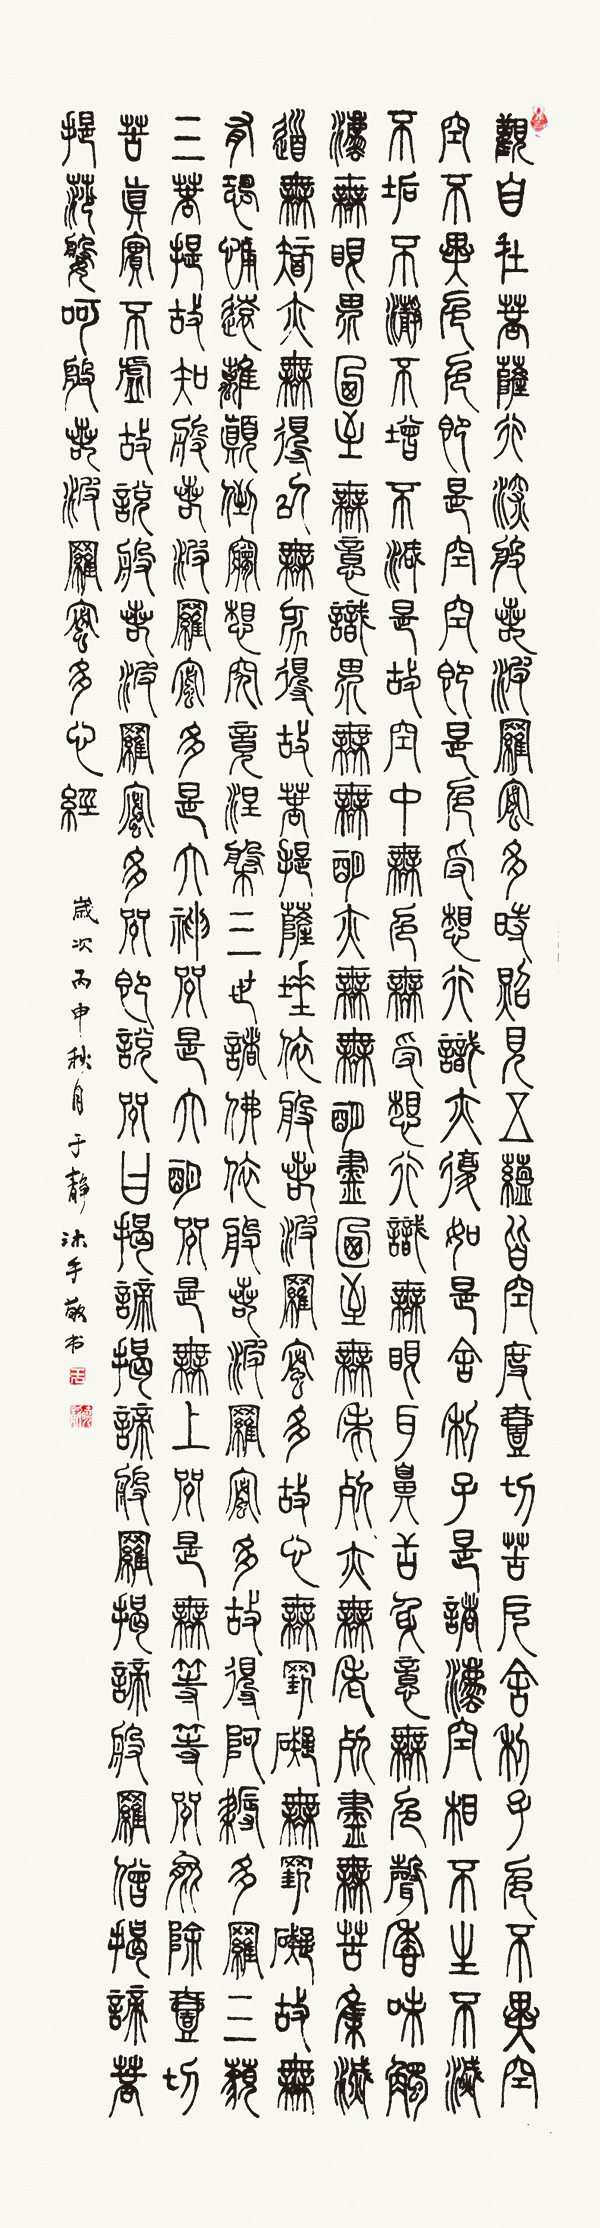 觀自在菩薩行深般若波羅蜜多時照見五蘊皆空度壹切苦厄舍利子色不異空
空不異色色即是空空即是色受想行識亦復如是舍利子是諸法空相不生不滅
不垢不瀞不增不減是故空中無色無受想行識無眼耳鼻舌身意無色聲香味觸
法無眼界乃至無意識界無無明亦無無明盡乃至無老死亦無老死盡無苦集滅
道無智亦無得以無所得故菩提薩埵依般若波羅蜜多故心無罣礙無罣礙故無
有恐怖遠離顛倒夢想究竟涅槃三世諸佛依般若波羅蜜多故得阿耨多羅三藐
三菩提故知般若波羅蜜多是大神咒是大明咒是無上咒是無等等咒能除壹切
苦真實不虛故說般若波羅蜜多咒即說咒曰揭諦揭諦般羅揭諦般羅僧揭諦菩
提莎婆呵般若波羅蜜多心經
歲次丙申秋月于靜沐手敬书